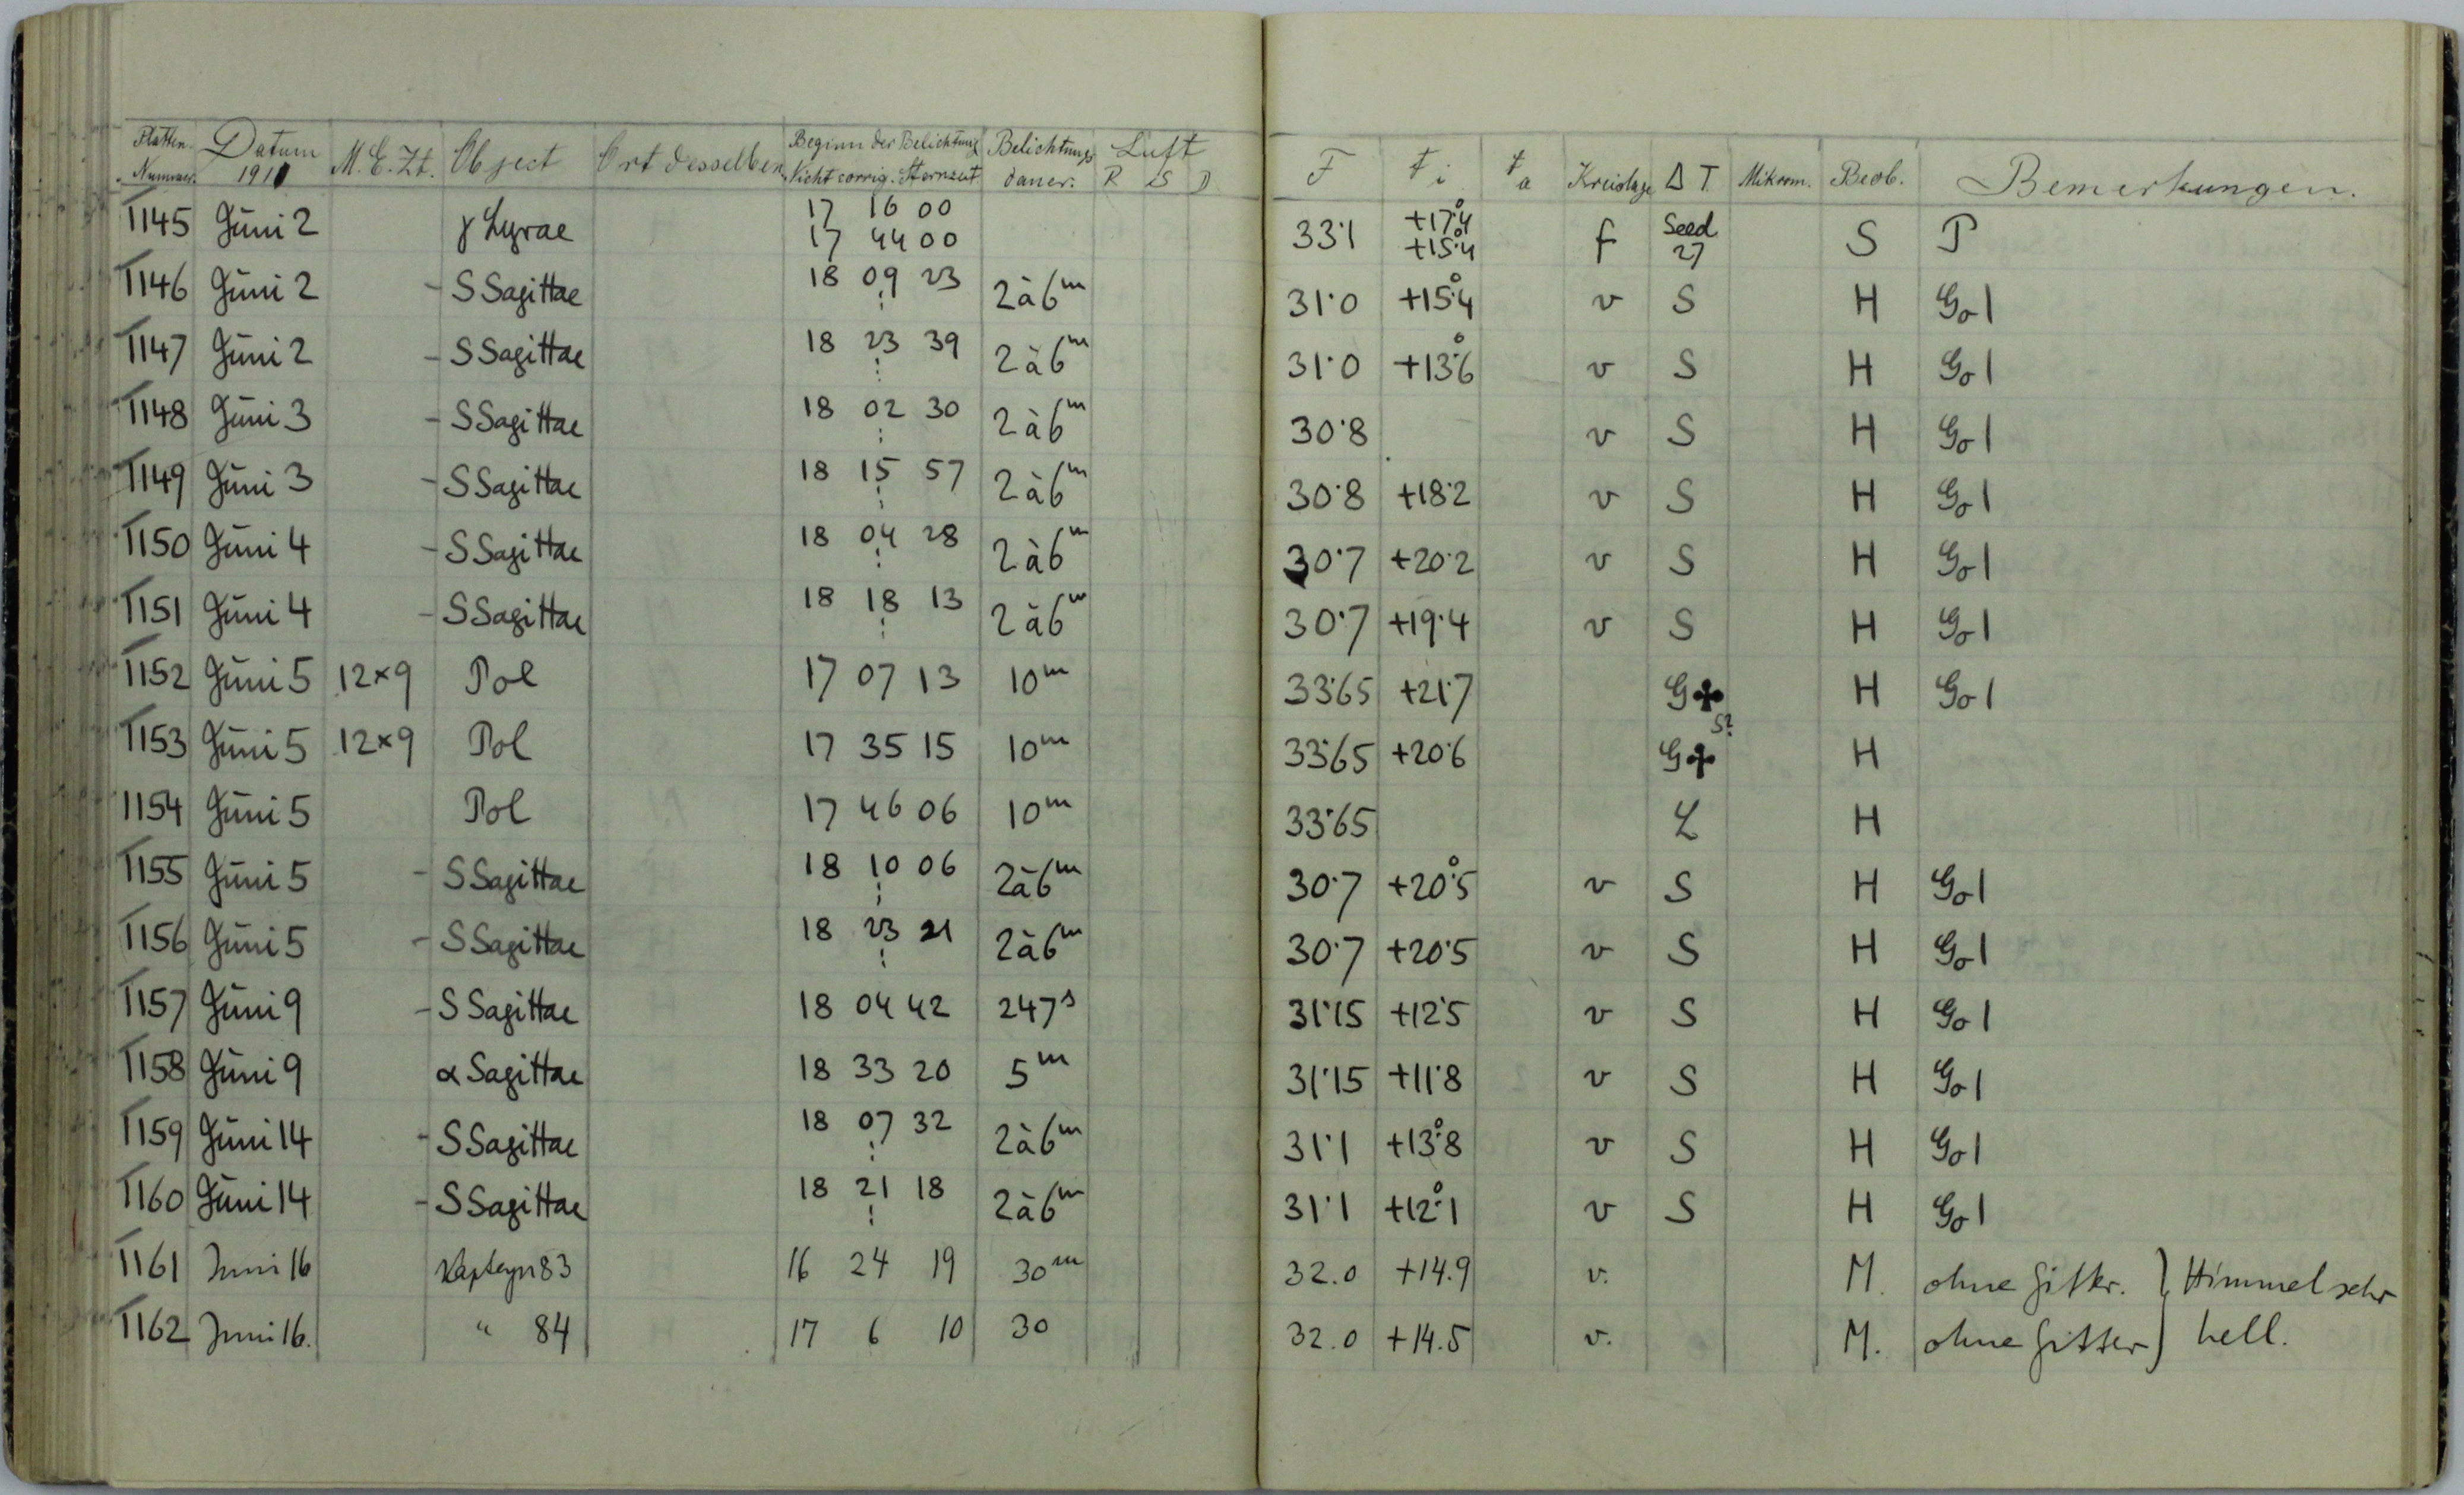 Platten- Nummer. Datum 1911 M.E.Zt. Object Ort desselben Beginn der Belichtung Nicht corrig. Sternzeit. Belichtungs daner. Luft R S D F t i t a Kreislage Δ T Mikrom. Beob. Bemerkungen.
1145 Juni 2 γ Lyrae 17 16 00 17 44 00 33.1 +17.4° +15.4° f Seed 27 S P
1146 Juni 2 - S Sagittae 18 09 23 2 à 6m 31.0 +15.4° v S H Go 1
1147 Juni 2 - S Sagittae 18 23 39 2 à 6m 31.0 +13.6° v S H Go 1
1148 Juni 3 - S Sagittae 18 02 30 2 à 6m 30.8 v S H Go 1
1149 Juni 3 - S Sagittae 18 15 57 2 à 6m 30.8 +18.2 v S H Go 1
1150 Juni 4 - S Sagittae 18 04 28 2 à 6m 30.7 +20.2 v S H Go 1
1151 Juni 4 - S Sagittae 18 18 13 2 à 6m 30.7 +19.4 v S H Go 1
1152 Juni 5 12×9 Pol 17 07 13 10m 33.65 +21.7 G✤ S? H Go 1
1153 Juni 5 12×9 Pol 17 35 15 10m 33.65 +20.6 G✤ H
1154 Juni 5 Pol 17 46 06 10m 33.65 L H
1155 Juni 5 - S Sagittae 18 10 06 2 à 6m 30.7 +20.5° v S H Go 1
1156 Juni 5 - S Sagittae 18 23 21 2 à 6m 30.7 +20.5 v S H Go 1
1157 Juni 9 - S Sagittae 18 04 42 247s 31.15 +12.5 v S H Go 1
1158 Juni 9 α Sagittae 18 33 20 5m 31.15 +11.8 v S H Go 1
1159 Juni 14 - S Sagittae 18 07 32 2 à 6m 31.1 +13.8° v S H Go 1
1160 Juni 14 - S Sagittae 18 21 18 2 à 6m 31.1 +12.1° v S H Go 1
1161 Juni 16 Kapteyn 83 16 24 19 30m 32.0 +14.9 v. M. ohne Gitter. } Himmel sehr
1162 Juni 16. " 84 17 6 10 30 32.0 +14.5 v. M. ohne Gitter } hell.